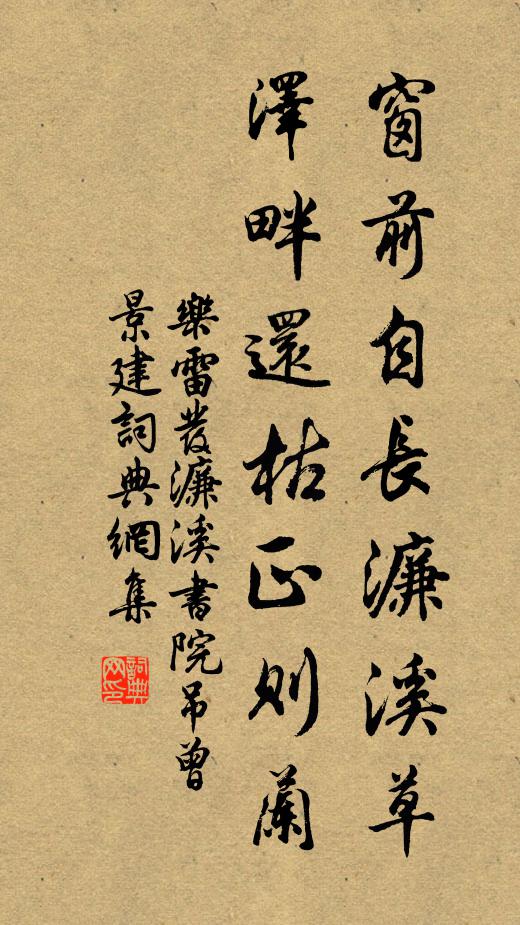 窗前自長濂溪草
澤畔還枯正則蘭
樂雷發濂溪書院吊曾
景建詞典網集
詞典網印